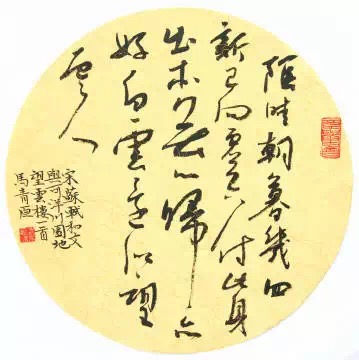 陰晴朝暮幾回
新已向虛空付此身
出本無心歸亦
好白雲還似望
雲人
宋蘇軾和文
與可洋川園池
望雲樓一首
馬青